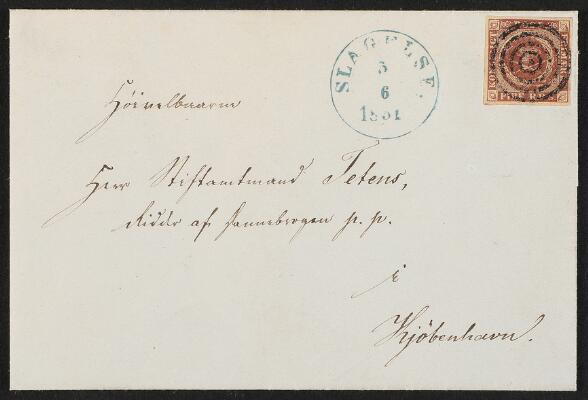 SLAGELSE.
5
6
1851
Höivelbaarne
Herr Stiftamtmand Tetens,
Ridder af Dannebrogen p. p.
i
Kjöbenhavn.